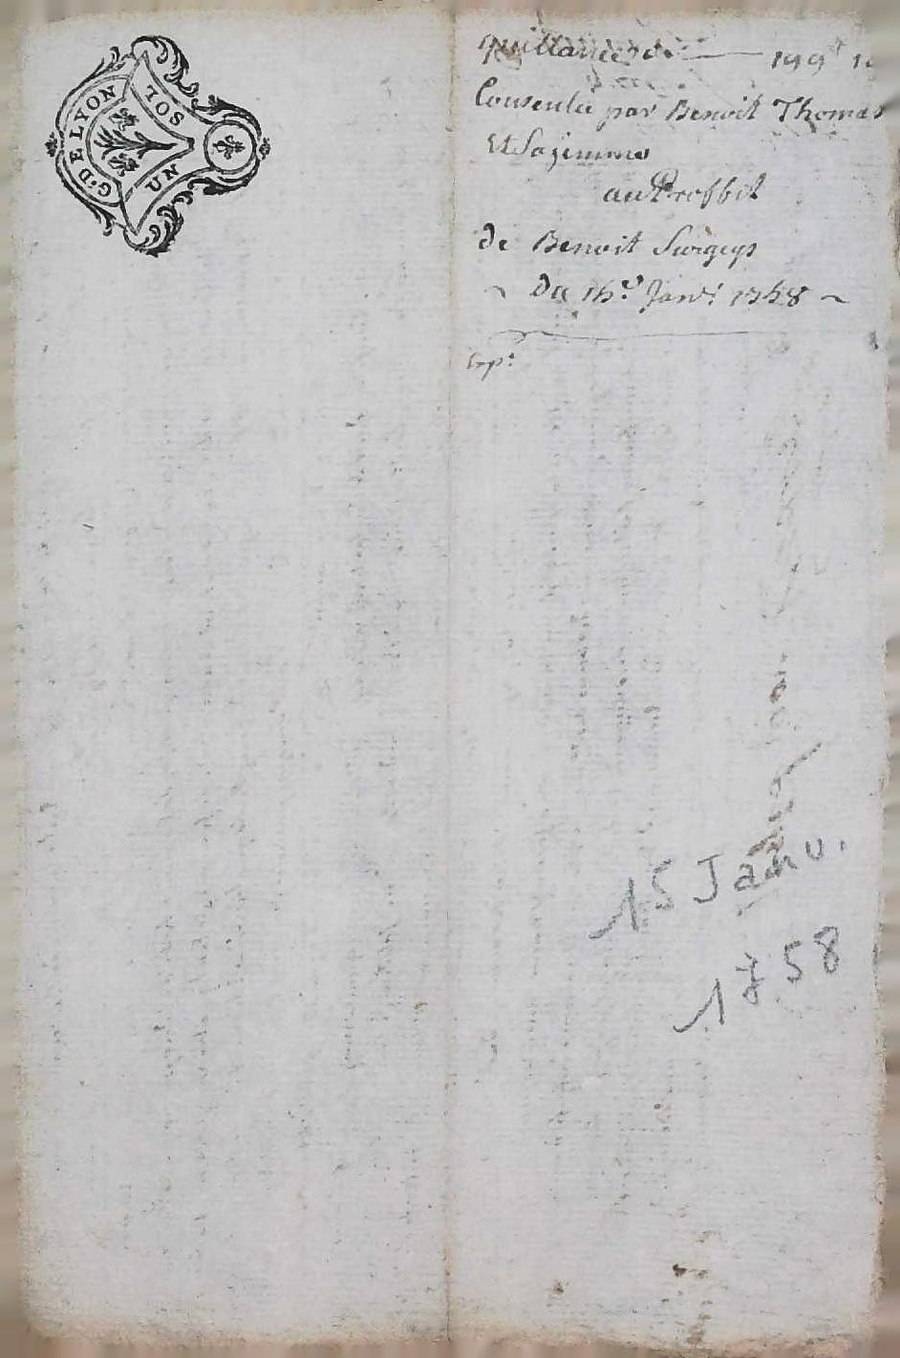 G.^D E LYON
UN SOL
quittance de — 199# 1
Consentie par Benoit Thomas
Et Sa femme
au Proffit
de Benoit Surgeys
~ Du 15.e Janv.r 1758 ~
Exp.e
15 Janv.
1758